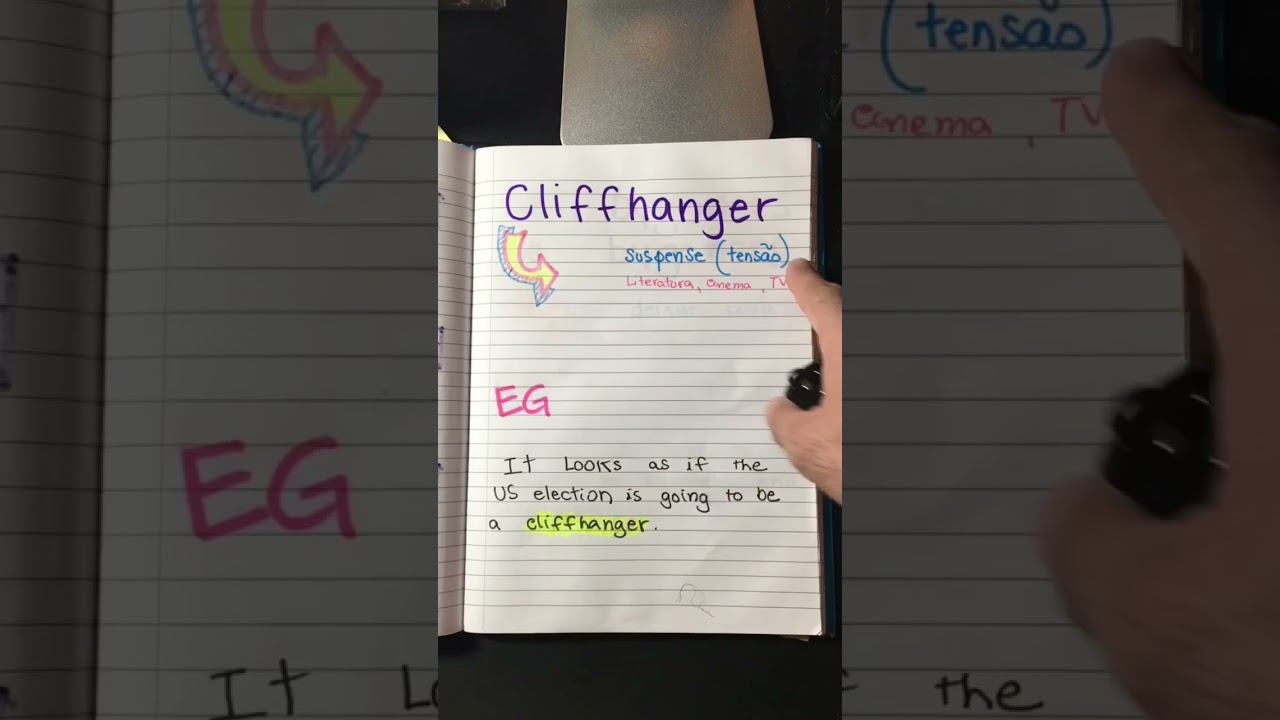 Cliffhanger
suspense (tensão)
Literatura, cinema, TV
EG
It Looks as if the
US election is going to be
a cliffhanger.